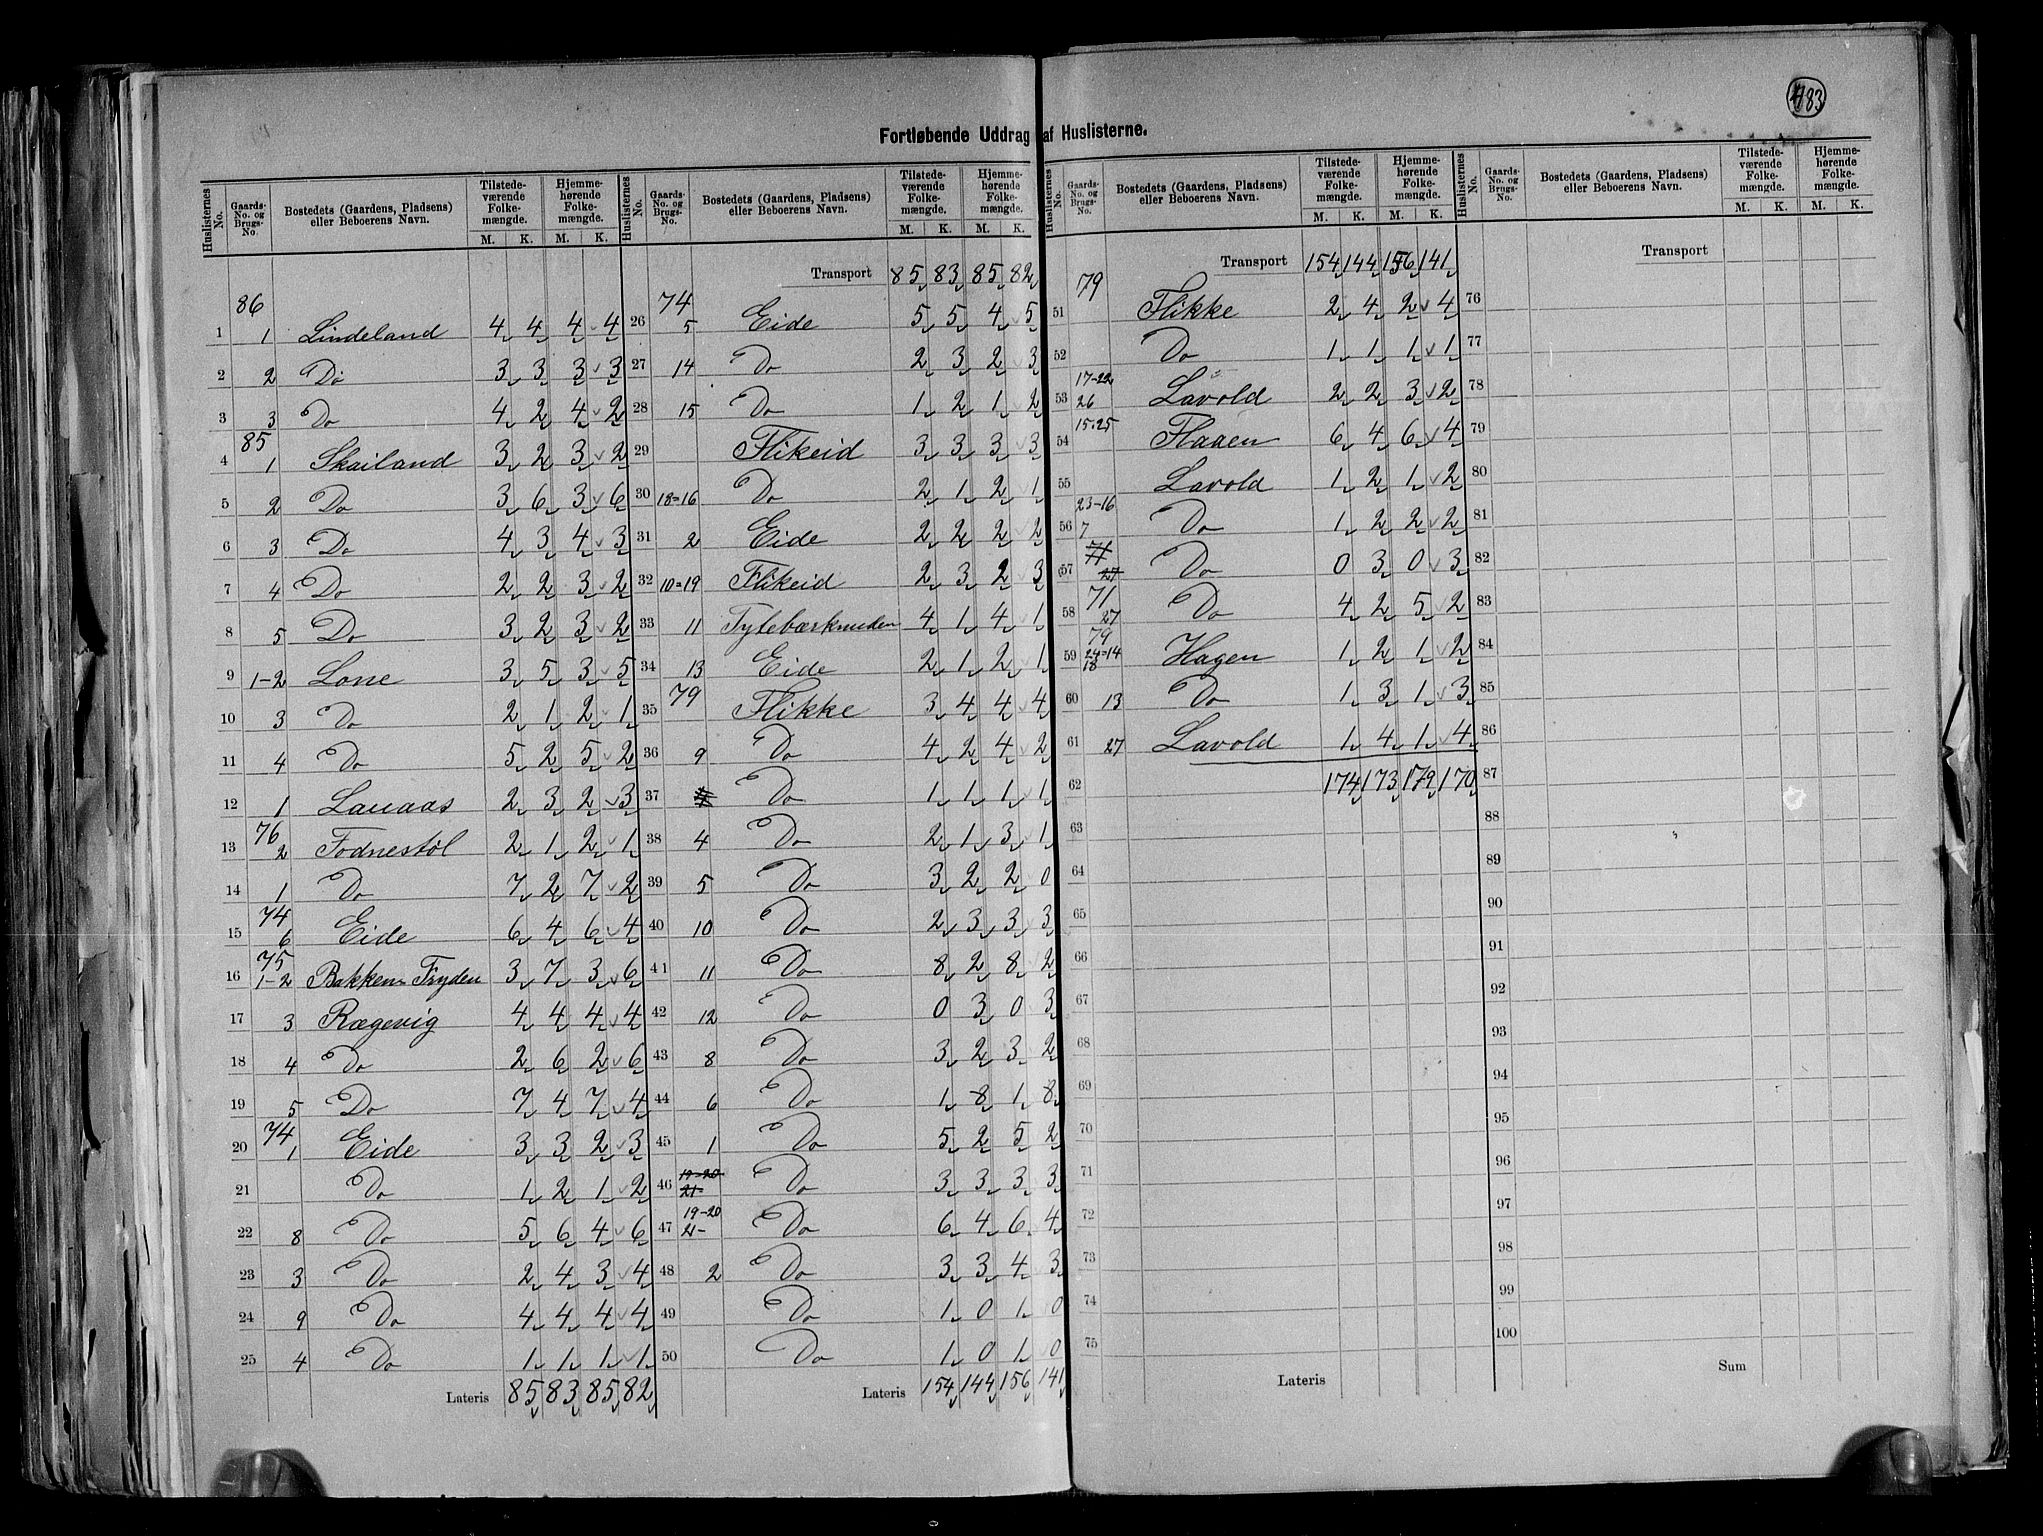 483
Fortløbende Uddrag af Huslisterne.
Huslisternes No. | Gaards-No. og Brugs-No. | Bostedets (Gaardens, Pladsens) eller Beboerens Navn. | Tilstedeværende Folkemængde. M. K. | Hjemmehørende Folkemængde. M. K.
86
1 1 Lindeland 4 4 4 4
2 2 Do 3 3 3 3
3 3 Do 4 2 4 2
85
4 1 Skailand 3 2 3 2
5 2 Do 3 6 3 6
6 3 Do 4 3 4 3
7 4 Do 2 2 3 2
8 5 Do 3 2 3 2
9 1-2 Lone 3 5 3 5
10 3 Do 2 1 2 1
11 4 Do 5 2 5 2
12 1 Lauaas 2 3 2 3
76
13 2 Fodnestøl 2 1 2 1
14 1 Do 7 2 7 2
74
15 6 Eide 6 4 6 4
75
16 1-2 Bakken Fryden 3 7 3 6
17 3 Rægevig 4 4 4 4
18 4 Do 2 6 2 6
19 5 Do 7 4 7 4
74
20 1 Eide 3 3 2 3
21 Do 1 2 1 2
22 8 Do 5 6 4 6
23 3 Do 2 4 3 4
24 9 Do 4 4 4 4
25 4 Do 1 1 1 1
Lateris 85 83 85 82
Huslisternes No. | Gaards-No. og Brugs-No. | Bostedets (Gaardens, Pladsens) eller Beboerens Navn. | Tilstedeværende Folkemængde. M. K. | Hjemmehørende Folkemængde. M. K.
Transport 85 83 85 82
74
26 5 Eide 5 5 4 5
27 14 Do 2 3 2 3
28 15 Do 1 2 1 2
29 Flikeid 3 3 3 3
30 18=16 Do 2 1 2 1
31 2 Eide 2 2 2 2
32 10=19 Flikeid 2 3 2 3
33 11 Tytebærknuden 4 1 4 1
34 13 Eide 2 1 2 1
79
35 Flikke 3 4 4 4
36 9 Do 4 2 4 2
37 Do 1 1 1 1
38 4 Do 2 1 3 1
39 5 Do 3 2 2 0
40 10 Do 2 3 3 3
41 11 Do 8 2 8 2
42 12 Do 0 3 0 3
43 8 Do 3 2 3 2
44 6 Do 1 8 1 8
45 1 Do 5 2 5 2
46 19-20 21- Do 3 3 3 3
47 19-20 21- Do 6 4 6 4
48 2 Do 3 3 4 3
49 Do 1 0 1 0
50 Do 1 0 1 0
Lateris 154 144 156 141
Huslisternes No. | Gaards-No. og Brugs-No. | Bostedets (Gaardens, Pladsens) eller Beboerens Navn. | Tilstedeværende Folkemængde. M. K. | Hjemmehørende Folkemængde. M. K.
Transport 154 144 156 141
79
51 Flikke 2 4 2 4
52 Do 1 1 1 1
53 17-22 26 Lavold 2 2 3 2
54 15.25 Flaaen 6 4 6 4
55 Lavold 1 2 1 2
56 23-16 7 Do 1 2 2 2
57 71 27 Do 0 3 0 3
58 71 27 Do 4 2 5 2
79
59 24=14 18 Hagen 1 2 1 2
60 13 Do 1 3 1 3
61 27 Lavold 1 4 1 4
62 174 173 179 170
63
64
65
66
67
68
69
70
71
72
73
74
75
Lateris
Huslisternes No. | Gaards-No. og Brugs-No. | Bostedets (Gaardens, Pladsens) eller Beboerens Navn. | Tilstedeværende Folkemængde. M. K. | Hjemmehørende Folkemængde. M. K.
Transport
76
77
78
79
80
81
82
83
84
85
86
87
88
89
90
91
92
93
94
95
96
97
98
99
100
Sum